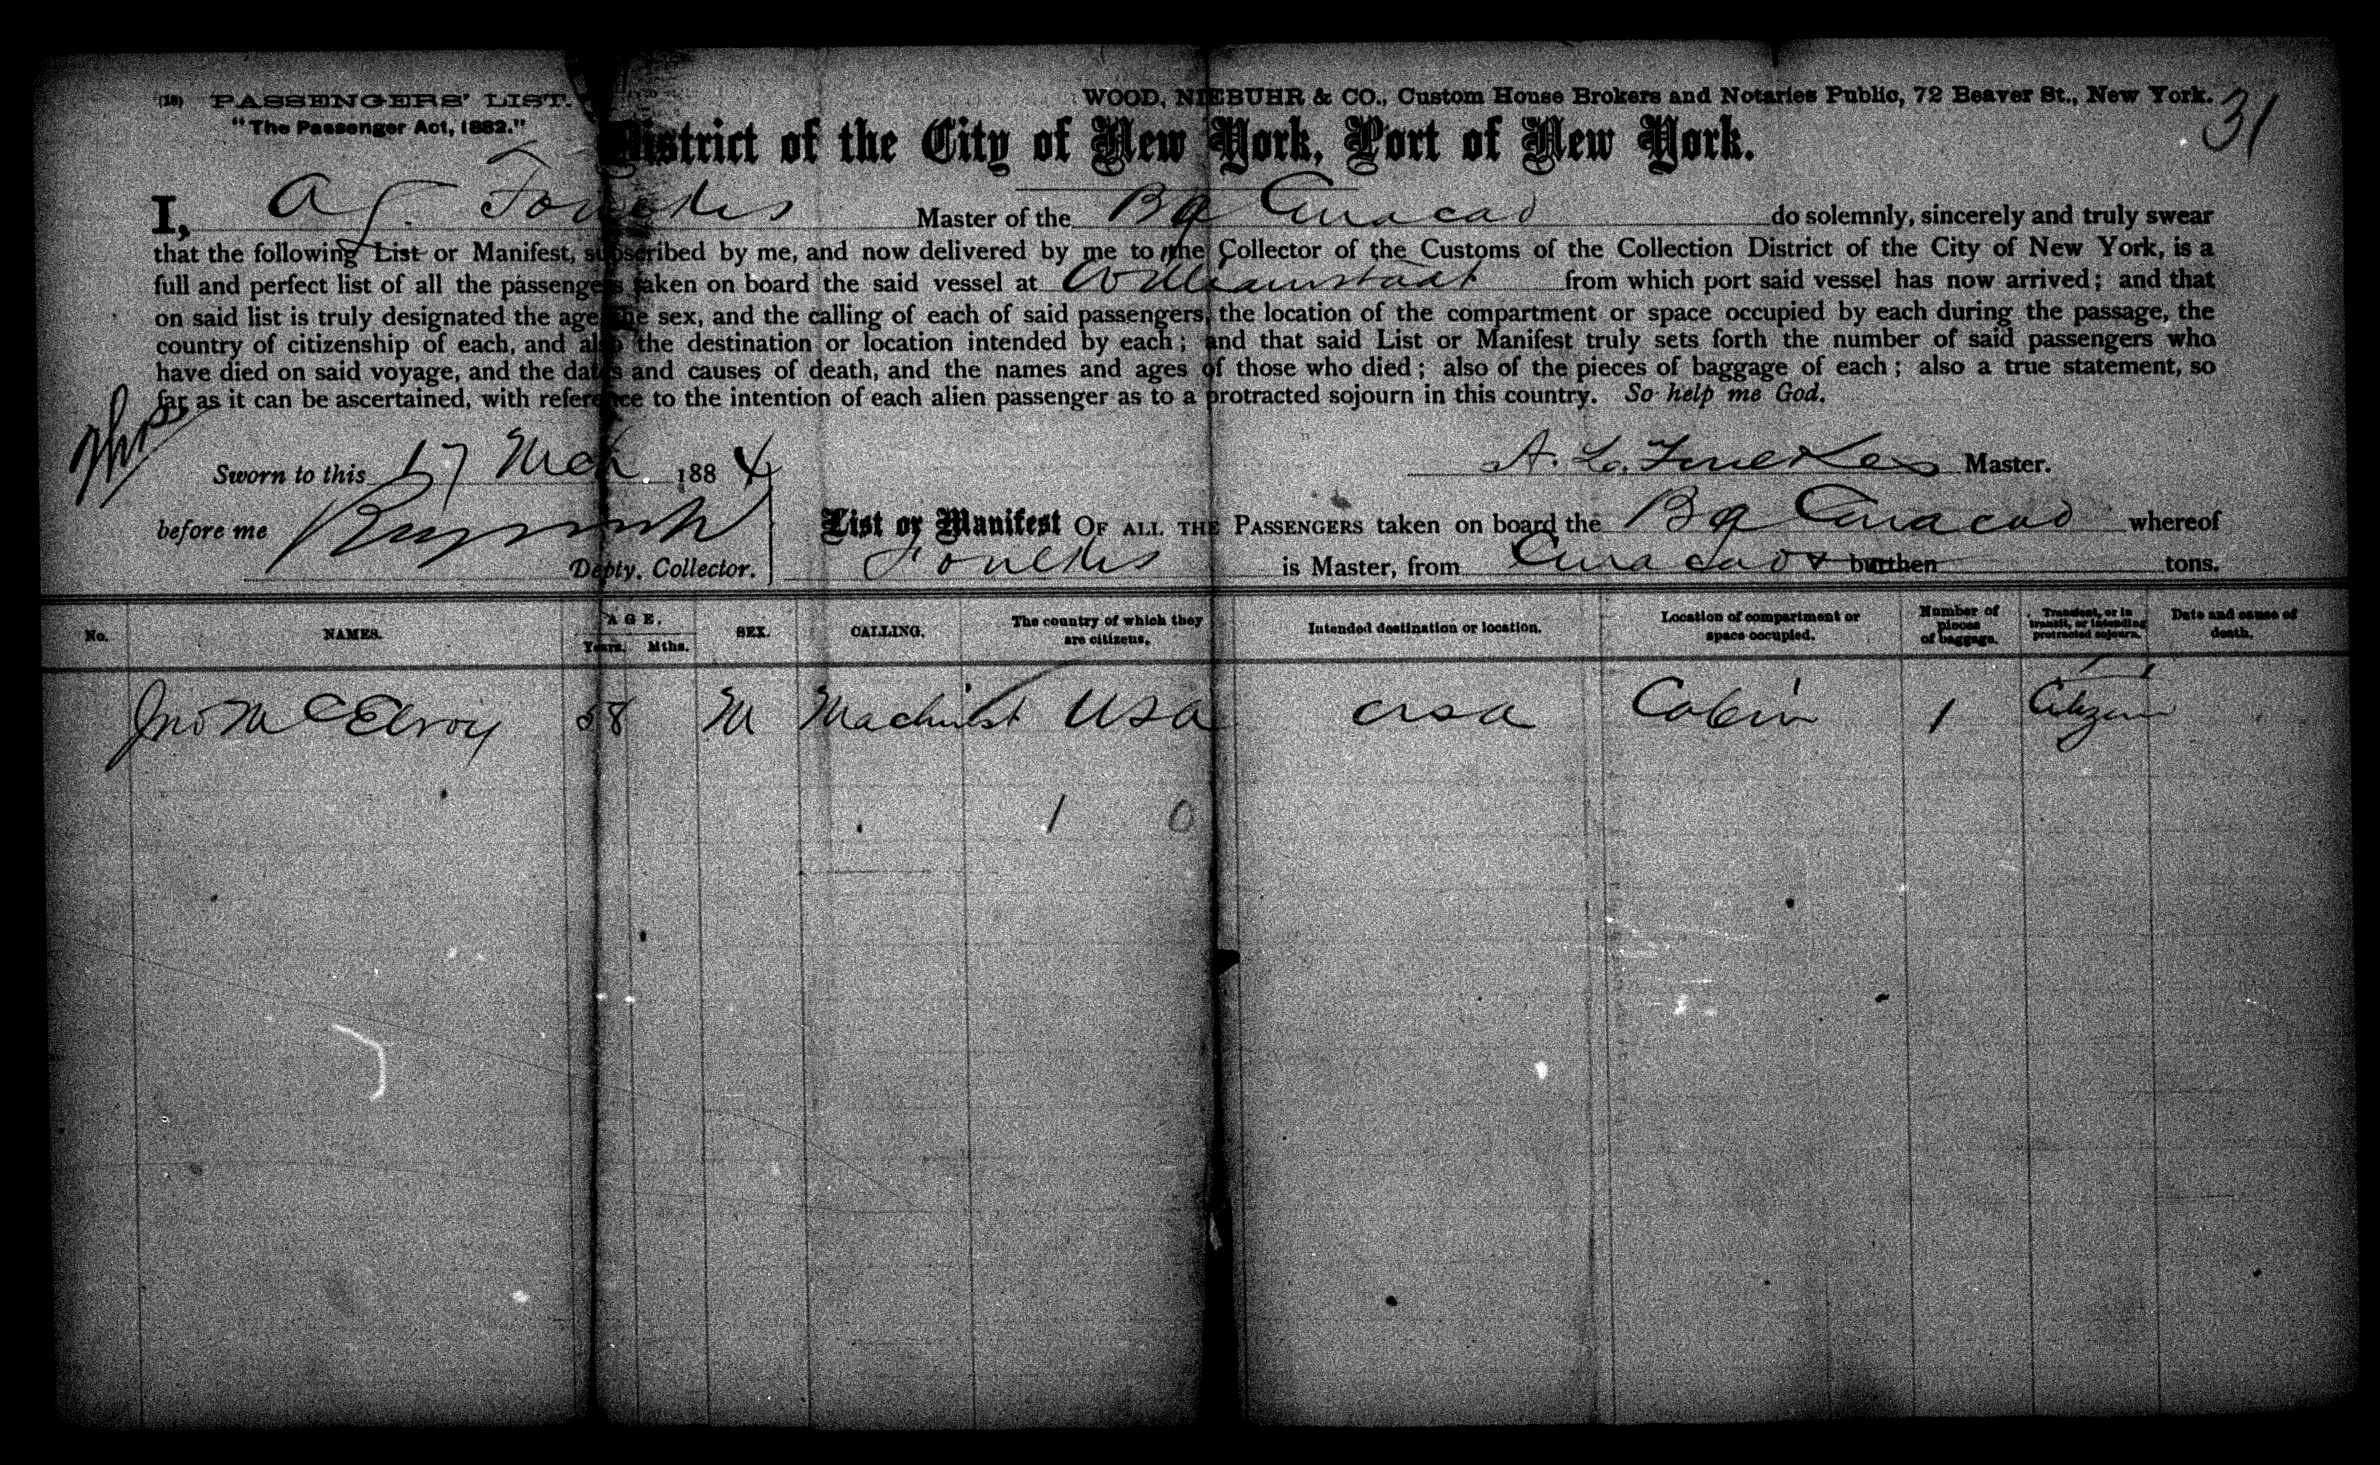 (18) PASSENGERS' LIST.
"The Passenger Act, 1882."
WOOD, NIEBUHR & CO., Custom House Brokers and Notaries Public, 72 Beaver St., New York.
31
District of the City of New York, Port of New York.
I, Master of the Bq Curacao do solemnly, sincerely and truly swear
that the following List or Manifest, subscribed by me, and now delivered by me to the Collector of the Customs of the Collection District of the City of New York, is a
full and perfect list of all the passengers taken on board the said vessel at Williamstadt from which port said vessel has now arrived; and that
on said list is truly designated the age, the sex, and the calling of each of said passengers, the location of the compartment or space occupied by each during the passage, the
country of citizenship of each, and also the destination or location intended by each; and that said List or Manifest truly sets forth the number of said passengers who
have died on said voyage, and the dates and causes of death, and the names and ages of those who died; also of the pieces of baggage of each; also a true statement, so
far as it can be ascertained, with reference to the intention of each alien passenger as to a protracted sojourn in this country. So help me God.
Sworn to this 17 Mch 1884
A. Master.
before me
Depty. Collector.
List or Manifest OF ALL THE PASSENGERS taken on board the Bq Curacao whereof
is Master, from Curacao burthen tons.
No. NAMES. AGE. Years. Mths. SEX. CALLING. The country of which they are citizens. Intended destination or location. Location of compartment or space occupied. Number of pieces of baggage. Transient, or in transit, or intending protracted sojourn. Date and cause of death.
Jno McElroy 58 M Machinist USA USA Cabin 1 Citizen
1 0